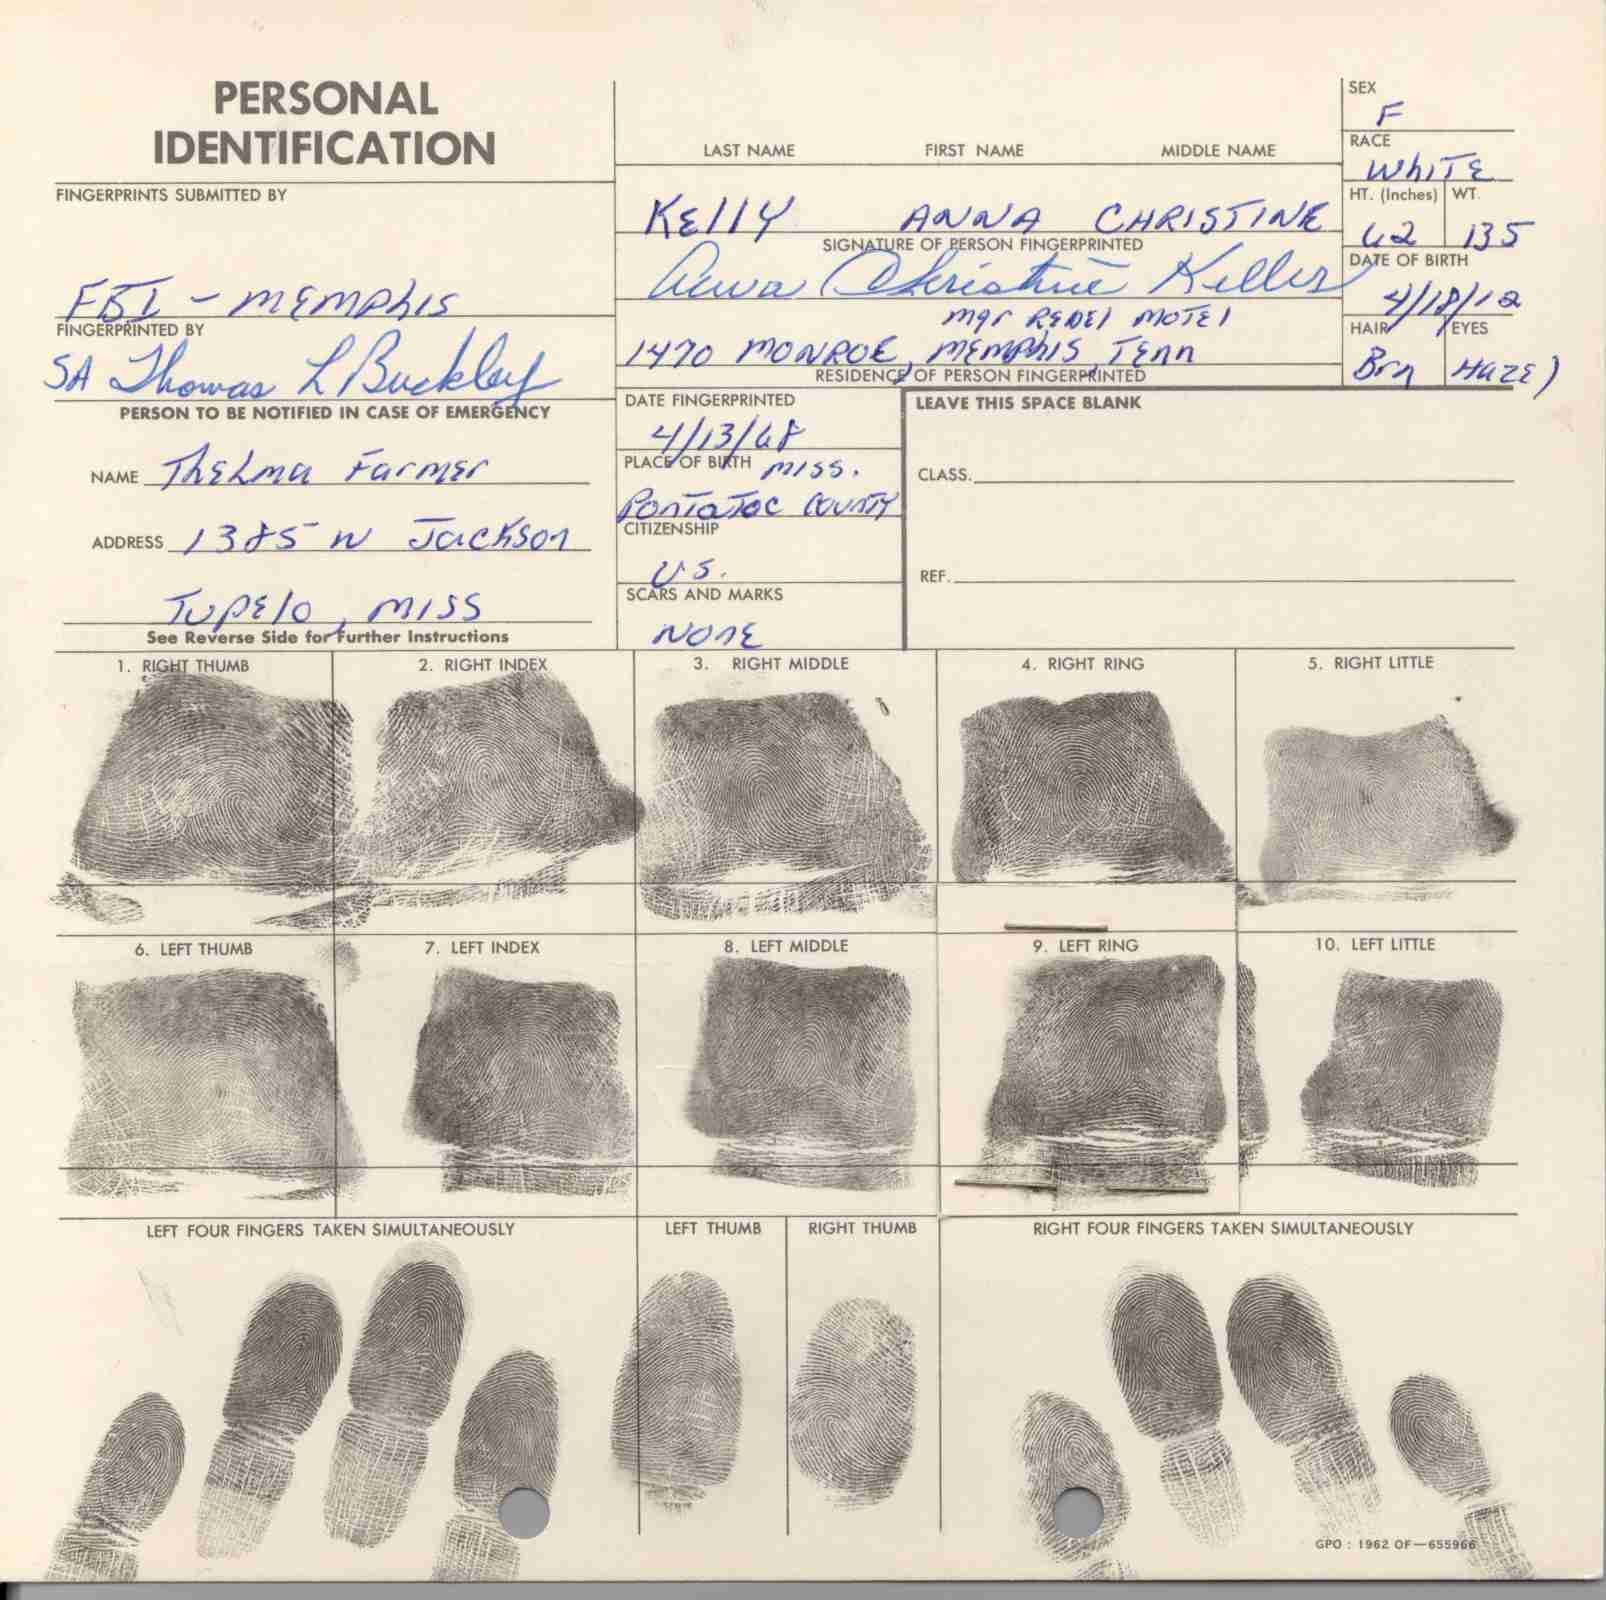 PERSONAL
IDENTIFICATION
FINGERPRINTS SUBMITTED BY
FBI - MEMPHIS
FINGERPRINTED BY
SA Thomas L Buckley
PERSON TO BE NOTIFIED IN CASE OF EMERGENCY
NAME Thelma Farmer
ADDRESS 1385 N Jackson
Tupelo, MISS
See Reverse Side for Further Instructions
LAST NAME FIRST NAME MIDDLE NAME
Kelly ANNA CHRISTINE
SIGNATURE OF PERSON FINGERPRINTED
Anna Christine Kelley
mgr REBEL MOTEL
1470 MONROE, MEMPHIS, TENN
RESIDENCE OF PERSON FINGERPRINTED
SEX
F
RACE
White
HT. (Inches) WT.
62 135
DATE OF BIRTH
4/18/12
HAIR EYES
Brn Hazel
DATE FINGERPRINTED
4/13/68
PLACE OF BIRTH MISS.
PONTOTOC COUNTY
CITIZENSHIP
U.S.
SCARS AND MARKS
NONE
LEAVE THIS SPACE BLANK
CLASS.
REF.
1. RIGHT THUMB 2. RIGHT INDEX 3. RIGHT MIDDLE 4. RIGHT RING 5. RIGHT LITTLE
6. LEFT THUMB 7. LEFT INDEX 8. LEFT MIDDLE 9. LEFT RING 10. LEFT LITTLE
LEFT FOUR FINGERS TAKEN SIMULTANEOUSLY LEFT THUMB RIGHT THUMB RIGHT FOUR FINGERS TAKEN SIMULTANEOUSLY
GPO : 1962 OF—655966